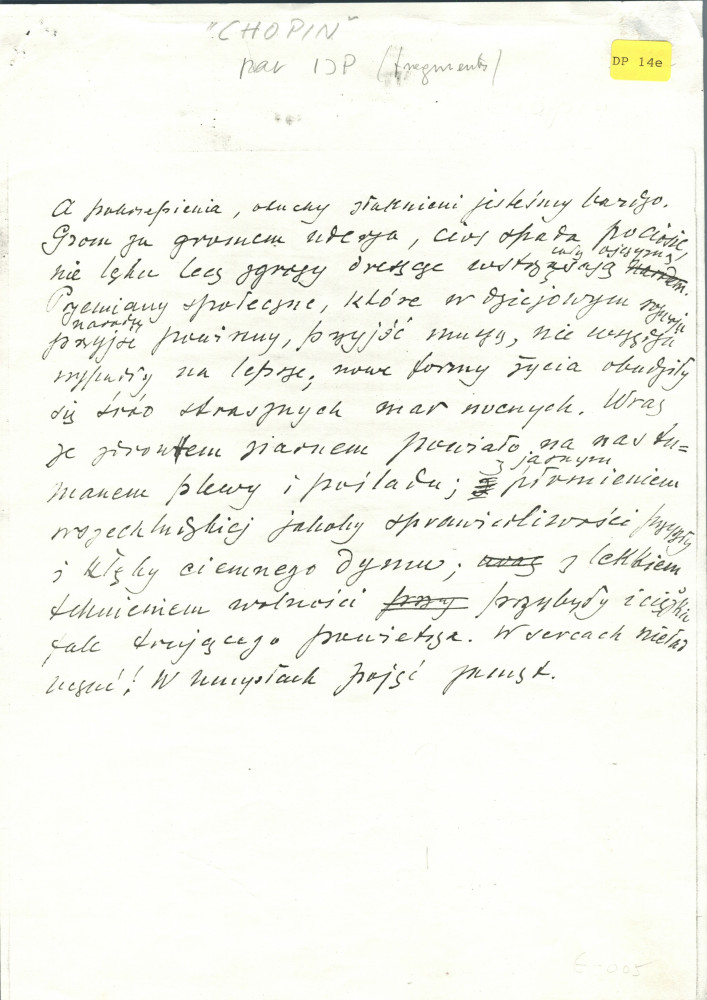 "CHOPIN"
par IDP (fragments)
DP 14e
A pokrzepienia, otuchy złaknieni jesteśmy bardzo.
Grom za gromem uderza, cios spada po ciosie,
całą ojczyzną
nie lęku lecz zgrozy dreszcze wstrząsają narodem.
Przemiany społeczne, które w dziejowym rozwoju
narodu
przyjść powinny, przyjść muszą, nie wszędzie
wypadły na lepsze; nowe formy życia obudziły
się śród strasznych mar nocnych. Wraz
ze zdrowem ziarnem powiało na nas tu=
z jasnym
manem plewy i pośladu; płomieniem
wszechludzkiej jakoby sprawiedliwości przyszły
i kłęby ciemnego dymu; wraz z lekkiem
tchnieniem wolności przy przybyły i ciężkie
fale trującego powietrza. W sercach nieład
uczuć! W umysłach pojęć zamęt.
E-005